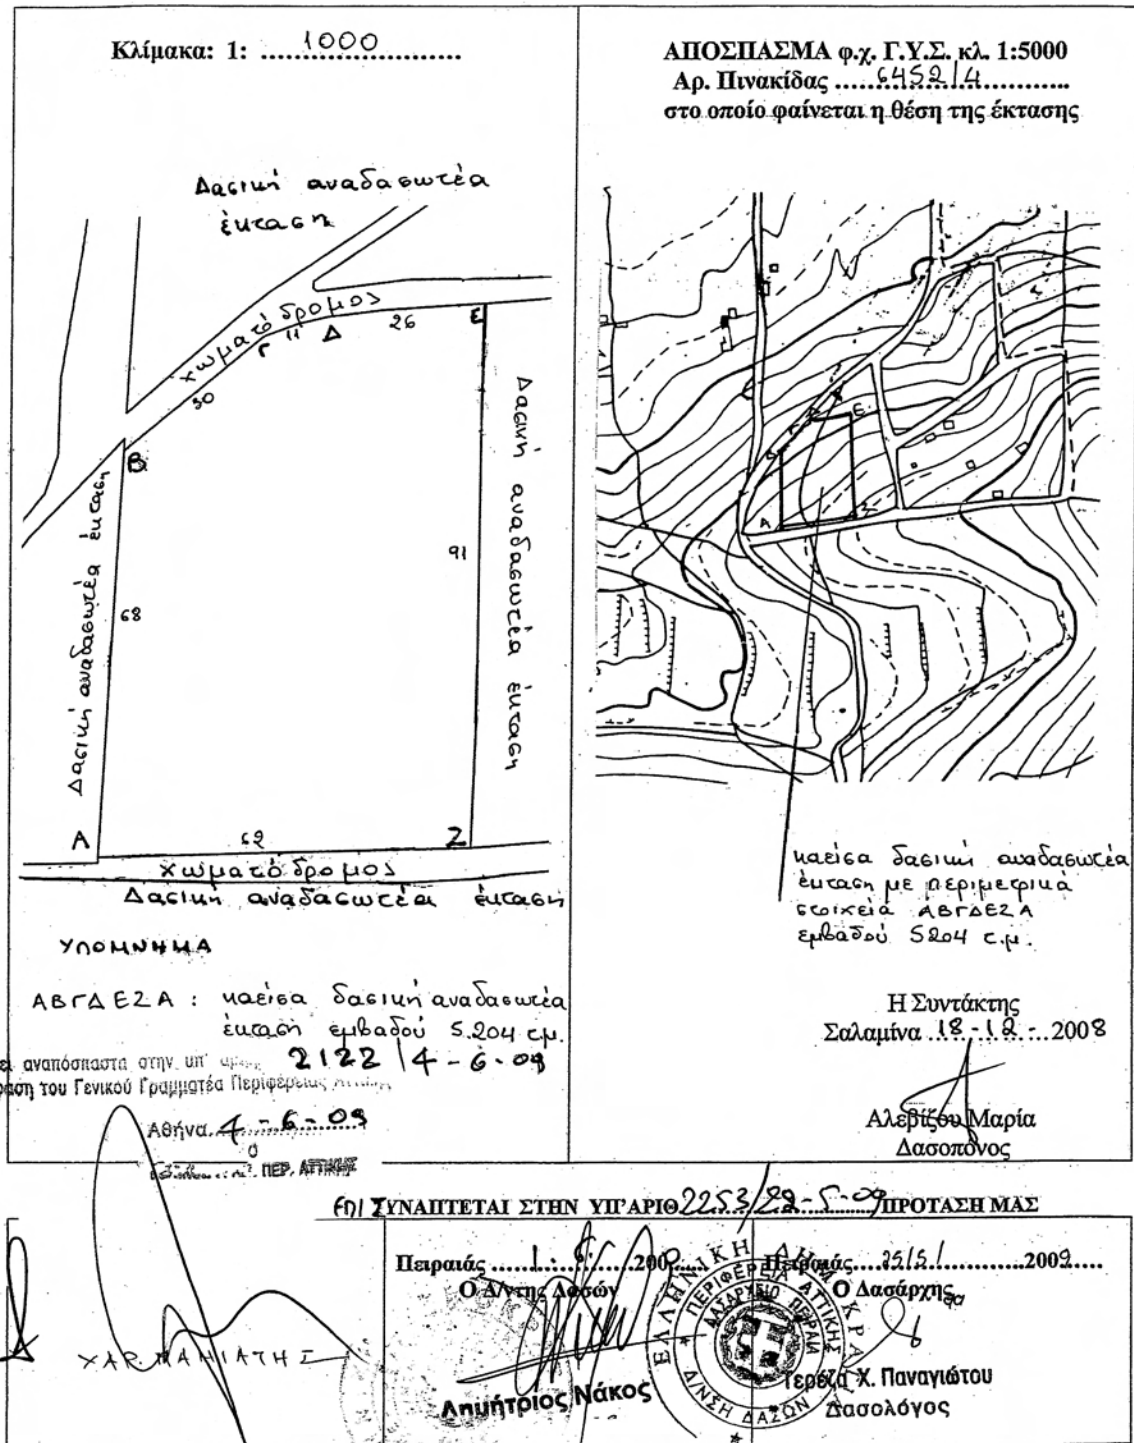 Κλίμακα: 1: 1000
Δασική αναδασωτέα
έκταση
χωματόδρομος
Γ 11 Δ 26 Ε
30
Β
Δασική αναδασωτέα έκταση
68
91
Δασική αναδασωτέα έκταση
Α 62 Ζ
χωματόδρομος
Δασική αναδασωτέα έκταση
ΥΠΟΜΝΗΜΑ
ΑΒΓΔΕΖΑ : καείσα δασική αναδασωτέα
έκταση εμβαδού 5.204 τ.μ.
αναπόσπαστα στην υπ' 2122 / 4-6-09
του Γενικού Γραμματέα Περιφέρειας
Αθήνα 4-6-09
Ο
ΠΕΡ. ΑΤΤΙΚΗΣ
ΑΠΟΣΠΑΣΜΑ φ.χ. Γ.Υ.Σ. κλ. 1:5000
Αρ. Πινακίδας 6452/4
στο οποίο φαίνεται η θέση της έκτασης
Β Γ Ε
Α Ζ
καείσα δασική αναδασωτέα
έκταση με περιμετρικά
στοιχεία ΑΒΓΔΕΖΑ
εμβαδού 5204 τ.μ.
Η Συντάκτης
Σαλαμίνα 18-12-2008
Αλεβίζου Μαρία
Δασοπόνος
ΕΠΙΣΥΝΑΠΤΕΤΑΙ ΣΤΗΝ ΥΠ'ΑΡΙΘ 2253/29-5-09 ΠΡΟΤΑΣΗ ΜΑΣ
Πειραιάς 200
Ο Δ/ντης Δασών
Δημήτριος Νάκος
Πειραιάς 25/5/ 2009
Ο Δασάρχης
Τερέζα Χ. Παναγιώτου
Δασολόγος
ΕΛΛΗΝΙΚΗ ΔΗΜΟΚΡΑ
ΠΕΡΙΦΕΡΕΙΑ ΑΤΤΙΚΗΣ
Δ/ΝΣΗ ΔΑΣΩΝ
ΔΑΣΑΡΧΕΙΟ ΠΕΙΡΑΙΑ